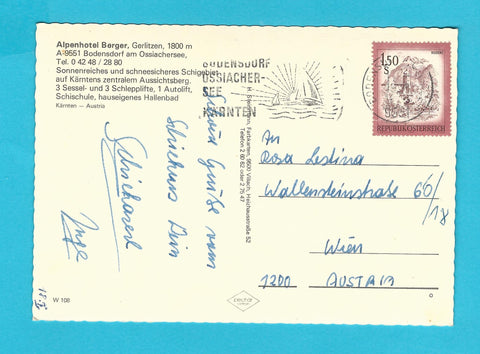 Alpenhotel Berger, Gerlitzen, 1800 m
A-9551 Bodensdorf am Ossiachersee,
Tel. 0 42 48 / 28 80
Sonnenreiches und schneesicheres Schigebiet
auf Kärntens zentralem Aussichtsberg.
3 Sessel- und 3 Schlepplifte, 1 Autolift,
Schischule, hauseigenes Hallenbad
Kärnten – Austria
BODENSDORF
OSSIACHER-
SEE
KÄRNTEN
1.50
S
REPUBLIK ÖSTERREICH
Farbkarten, 9500 Villach,
Grüße vom
Inge
An
Rosa
Wallensteinstraße 66/18
Wien
1200 AUSTRIA
W 108